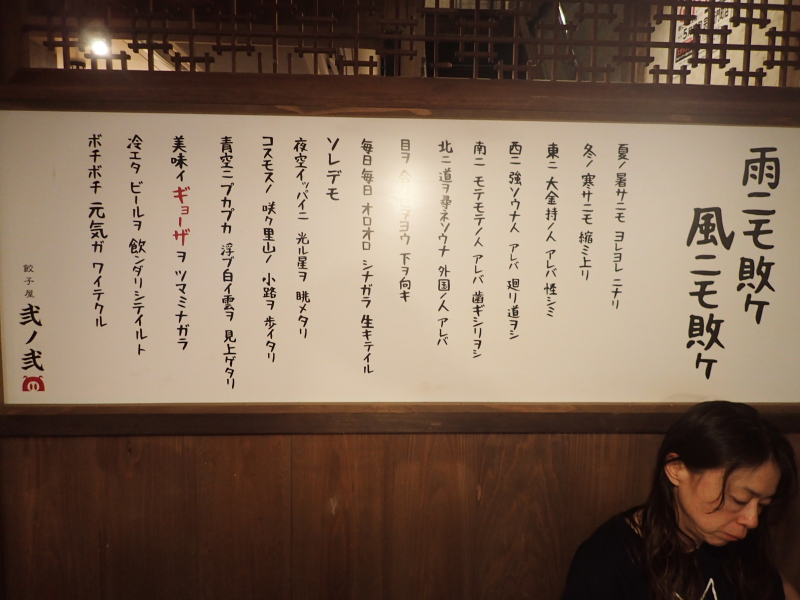 雨ニモ敗ケ
風ニモ敗ケ
夏ノ暑サニモ ヨレヨレ ニナリ
冬ノ寒サニモ 縮ミ上リ
東ニ 大金持ノ人 アレバ 怪シミ
西ニ 強ソウナ人 アレバ 廻リ道ヲシ
南ニ モテモテノ人 アレバ 歯ギシリヲシ
北ニ 道ヲ尋ネソウナ 外国ノ人 アレバ
目ヲ 合ワセヌヨウ 下ヲ向キ
毎日毎日 オロオロ シナガラ 生キテイル
ソレデモ
夜空イッパイニ 光ル星ヲ 眺メタリ
コスモスノ 咲ク里山ノ 小路ヲ 歩イタリ
青空ニプカプカ 浮ブ白イ雲ヲ 見上ゲタリ
美味イ ギョーザ ヲ ツマミナガラ
冷エタ ビールヲ 飲ンダリシテイルト
ボチボチ 元気ガ ワイテクル
餃子屋 弐ノ弐